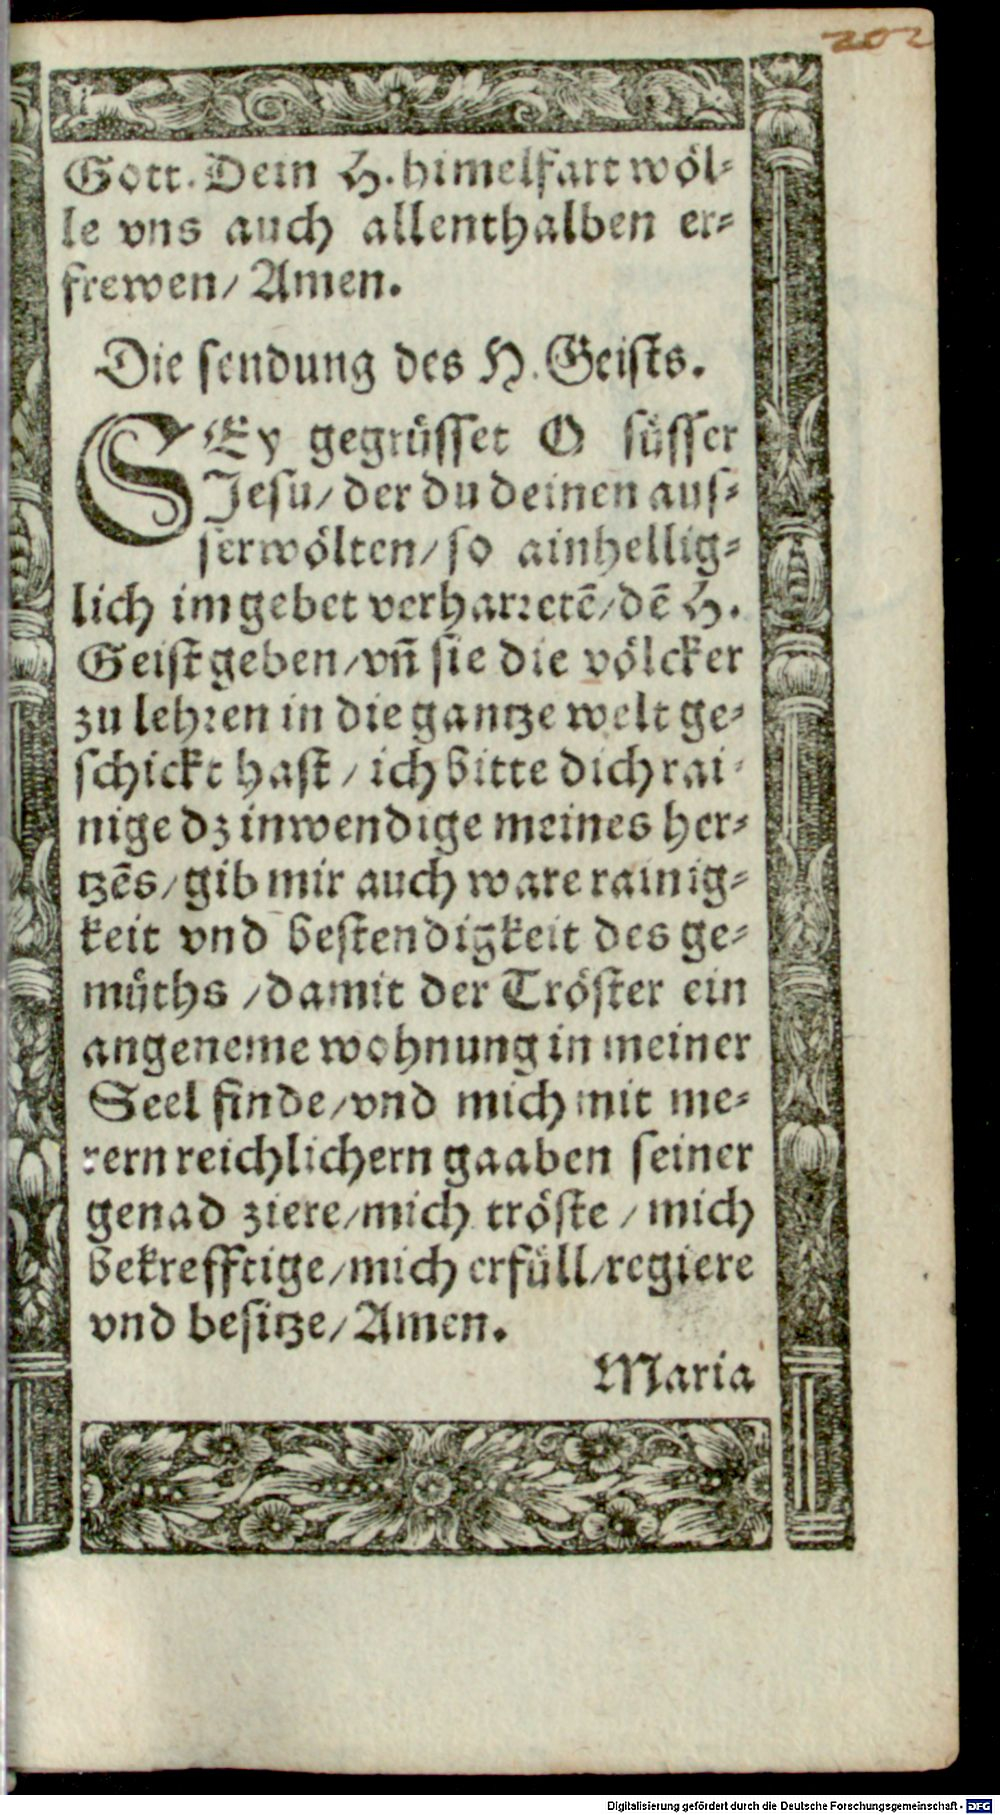 202
Gott. Dein H. himelfart wöl-
le vns auch allenthalben er-
frewen/ Amen.
Die sendung des H. Geists.
SEy gegrüsset O süsser
Jesu/ der du deinen aus-
serwölten/ so ainhellig-
lich im gebet verharretē/ dē H.
Geist geben/ vn̄ sie die völcker
zu lehren in die gantze welt ge-
schickt hast / ich bitte dich rai-
nige dz inwendige meines her-
tzēs/ gib mir auch ware rainig-
keit vnd bestendigkeit des ge-
müths / damit der Tröster ein
angeneme wohnung in meiner
Seel finde/ vnd mich mit me-
rern reichlichern gaaben seiner
genad ziere/ mich tröste / mich
bekrefftige/ mich erfüll/ regiere
vnd besitze/ Amen.
Maria
Digitalisierung gefördert durch die Deutsche Forschungsgemeinschaft - DFG